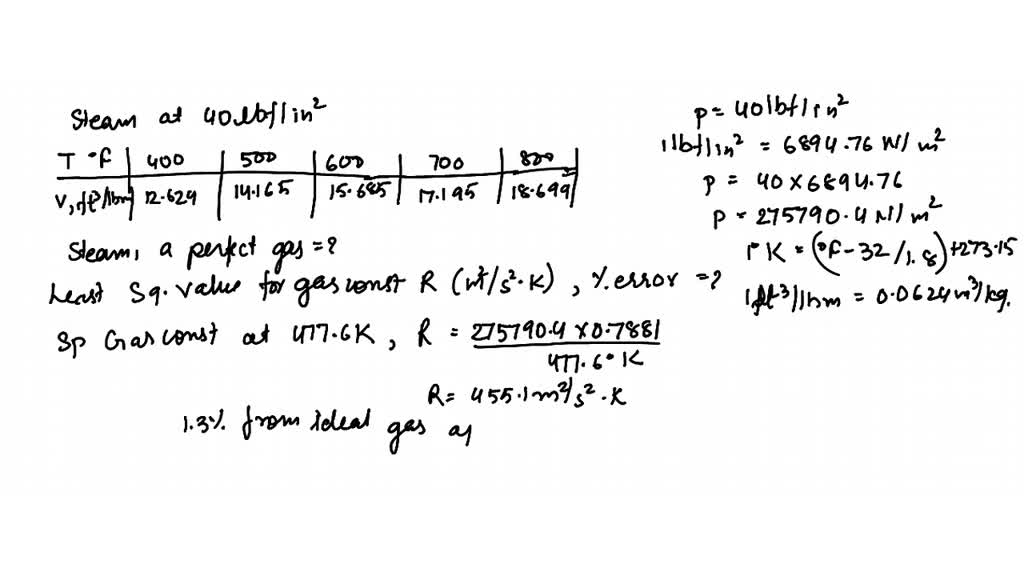 Steam at 40 lbf/in²
T °F | 400 | 500 | 600 | 700 | 800
v, ft³/lbm | 12.624 | 14.165 | 15.685 | 17.195 | 18.699
Steam, a perfect gas = ?
Least Sq. value for gas const R (m²/s²·K), % error = ?
Sp Gas const at 477.6K, R = 275790.4 × 0.7881
477.6° K
R = 455.1 m²/s²·K
1.3% from ideal gas
p = 40 lbf/in²
1 lbf/in² = 6894.76 N/m²
p = 40 × 6894.76
p = 275790.4 N/m²
1° K = (°F - 32 / 1.8) + 273.15
1 ft³/lbm = 0.0624 m³/kg.